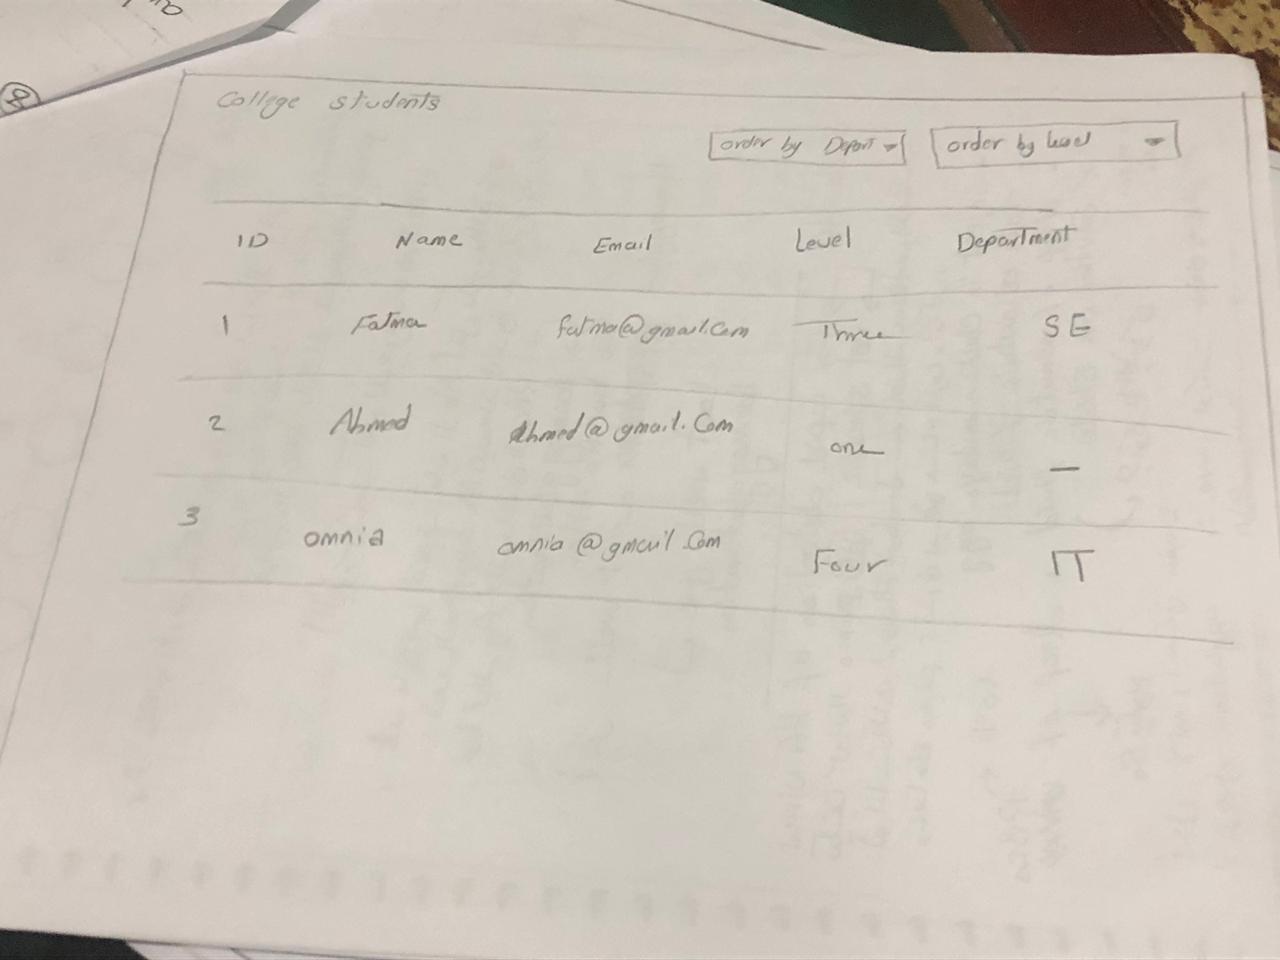 College students
order by Depart order by level
ID Name Email Level Department
1 Fatma fatma@gmail.com Three SE
2 Ahmed Ahmed@gmail.com one —
3 omnia omnia@gmail.com Four IT